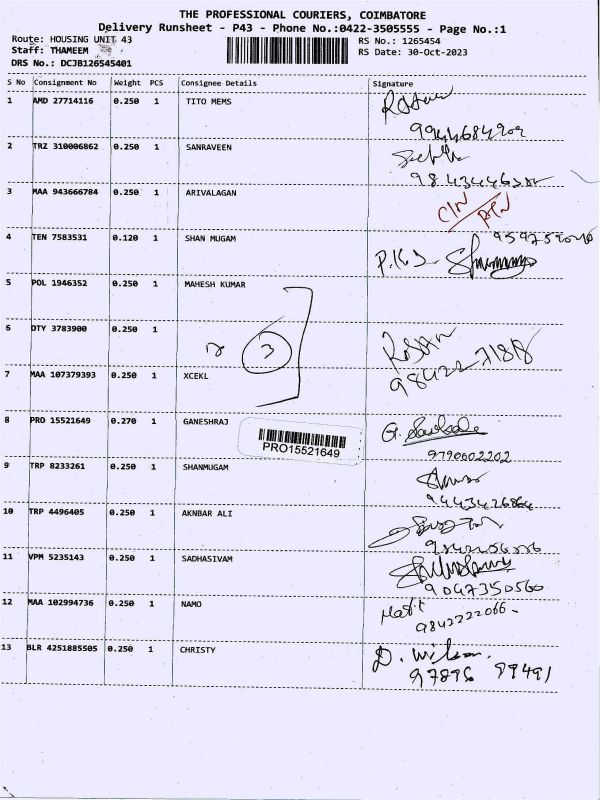 THE PROFESSIONAL COURIERS, COIMBATORE
Delivery Runsheet - P43 - Phone No.:0422-3505555 - Page No.:1
Route: HOUSING UNIT 43
RS No.: 1265454
Staff: THAMEEM
RS Date: 30-Oct-2023
DRS No.: DCJB126545401
S No Consignment No Weight PCS Consignee Details Signature
1 AMD 27714116 0.250 1 TITO MEMS
9944684902
2 TRZ 310006862 0.250 1 SANRAVEEN
3 MAA 943666784 0.250 1 ARIVALAGAN
CIN
4 TEN 7583531 0.120 1 SHAN MUGAM
P.K.S.
5 POL 1946352 0.250 1 MAHESH KUMAR
6 DTY 3783900 0.250 1
3
ROSAN
7 MAA 107379393 0.250 1 XCEKL
8 PRO 15521649 0.270 1 GANESHRAJ
G.
PRO15521649
9790602202
9 TRP 8233261 0.250 1 SHANMUGAM
9443426864
10 TRP 4496405 0.250 1 AKNBAR ALI
11 VPM 5235143 0.250 1 SADHASIVAM
9047350560
12 MAA 102994736 0.250 1 NAMO
9842222066
13 BLR 4251885505 0.250 1 CHRISTY
D. Wilson.
97896 89491